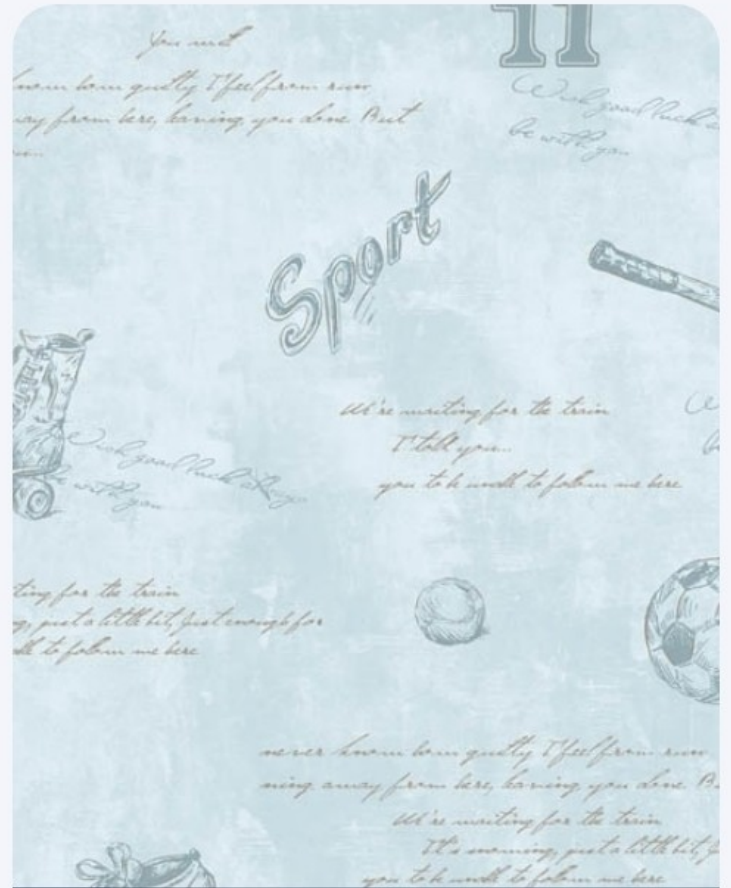 You will
know how guilty I feel from run
away from here, leaving you alone But
11
Wish good luck a
be with you
Sport
We're waiting for the train
I told you...
you to be unable to follow me here
Wish good luck always
with you
ting for the train
just a little bit, just enough for
to follow me here
never know how guilty I feel from run
ning away from here, leaving you alone B
We're waiting for the train
It's morning, just a little bit, j
you to be unable to follow me here